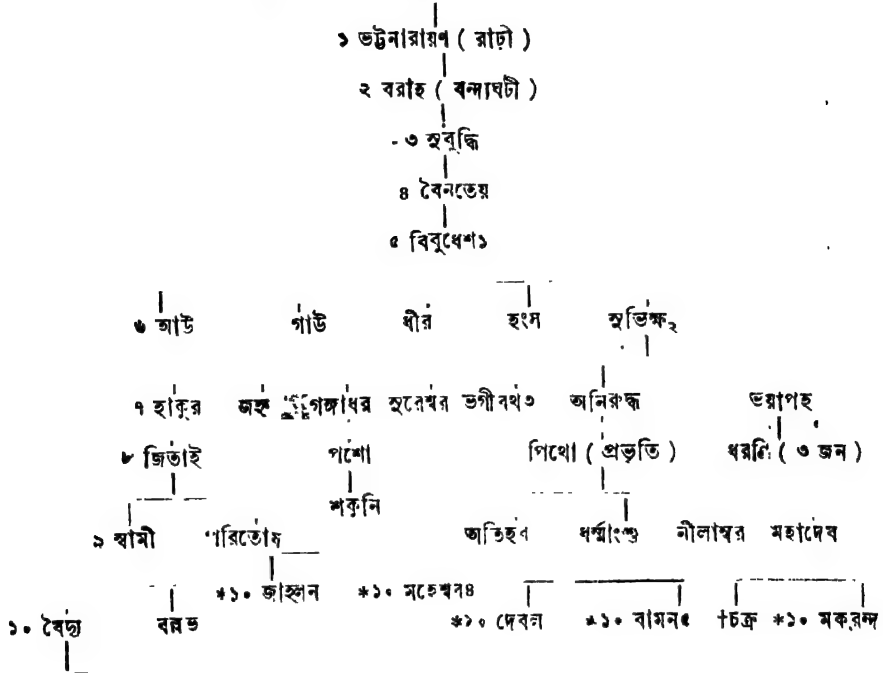 ১ ভট্টনারায়ণ ( রাঢ়ী )
২ বরাহ ( বন্দ্যঘটী )
৩ সুবুদ্ধি
৪ বৈনতেয়
৫ বিবুধেশ১
৬ আউ গাঁউ ধীর হংস সুভিক্ষ২
৭ হাকুর জহ্ন গঙ্গাধর সুরেশ্বর ভগীরথ৩ অনিরুদ্ধ ভয়াপহ
৮ জিতাই পশো পিথো ( প্রভৃতি ) ধরণি ( ৩ জন )
শকুনি
৯ স্বামী পরিতোষ অতিহব ধর্ম্মাংশু নীলাম্বর মহাদেব
*১০ জাহ্লন *১০ মহেশ্বর৪ *১০ দেবল *১০ বামন৫ †চক্র *১০ মকরন্দ
১০ বৈদ্য বল্লভ